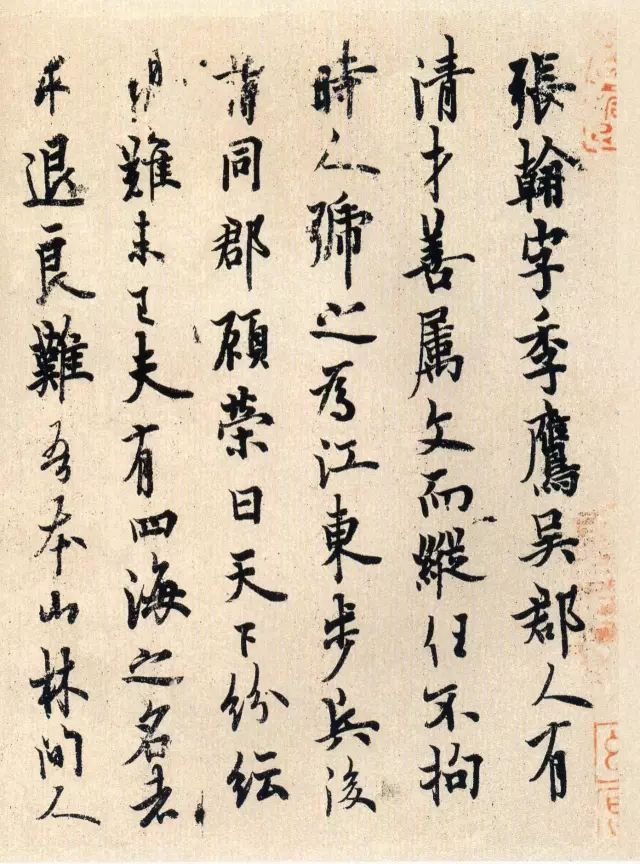 張翰字季鷹吳郡人有
清才善属文而縱任不拘
時人號之為江東步兵後
同郡顧榮曰天下紛紜
難未已夫有四海之名者
求退良難吾本山林間人